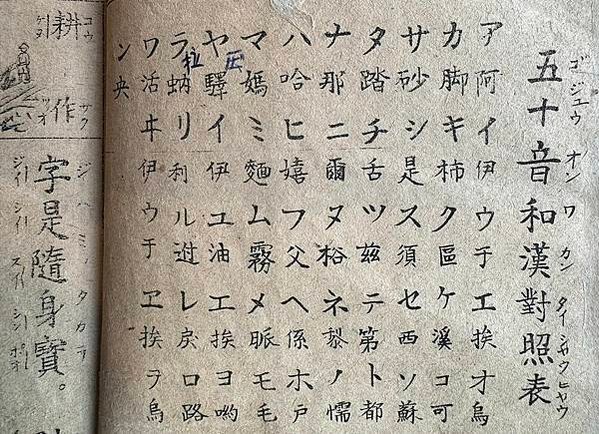 五十音和漢對照表
ゴジユウオンワカンタイシヤウヒヤウ
ア阿イ伊ウ于エ挨オ烏
カ脚キ柿ク區ケ溪コ可
サ砂シ是ス須セ西ソ蘇
タ踏チ舌ツ茲テ第ト都
ナ那ニ爾ヌ裕ネ黎ノ懦
ハ哈ヒ嬉フ父ヘ係ホ戸
マ媽ミ麵ム霧メ脈モ毛
ヤ驛イ伊ユ油エ挨ヨ喲
ラ蚋リ利ルレ戾ロ路
ワ活ヰ伊ウ于ヱ挨ヲ烏
ン央
耕作
コウサク
字是隨身寶。